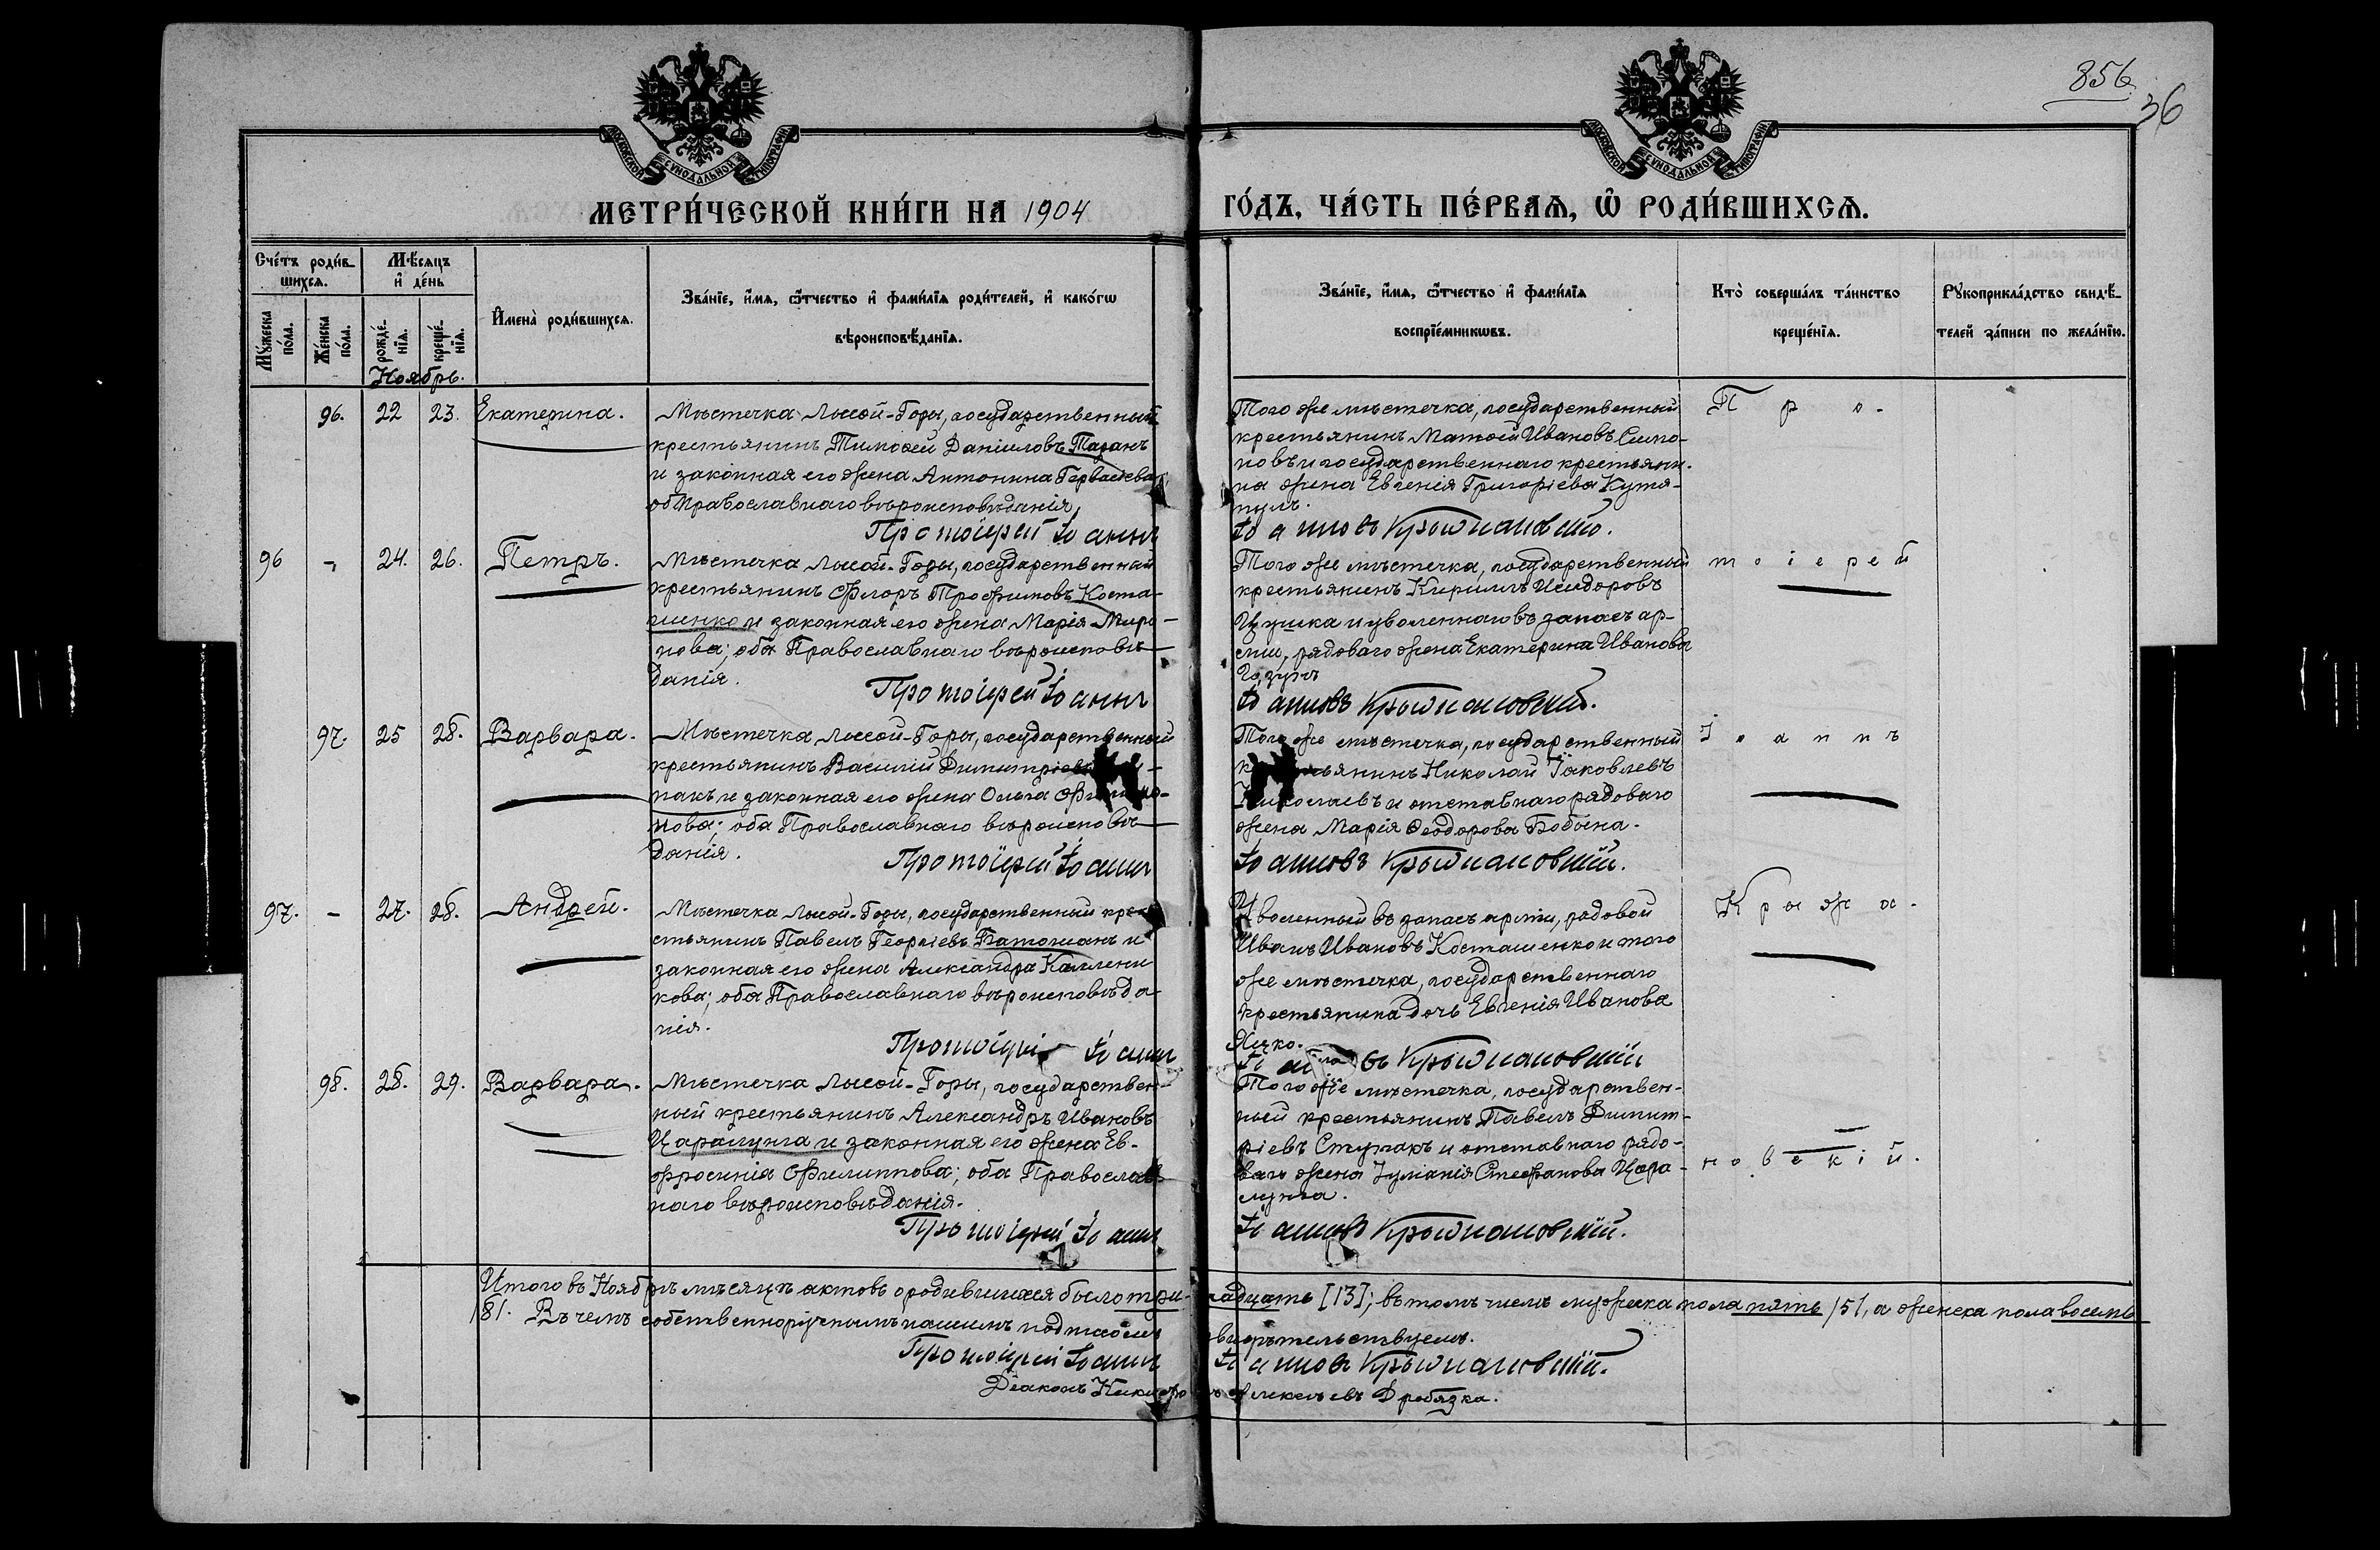 856
36
МОСКОВСКОЙ СѴНОДАЛЬНОЙ ТИПОГРАФІИ
МОСКОВСКОЙ СѴНОДАЛЬНОЙ ТИПОГРАФІИ
МЕТРИ́ЧЕСКОЙ КНИ́ГИ НА 1904
ГО́ДЪ, ЧА́СТЬ ПЕ́РВАѦ, Ѡ҆ РОДИ́ВШИХСѦ.
Сче́тъ роди́в-
шихсѧ.
Мꙋ́жеска по́ла.
Же́нска по́ла.
Мѣ́сѧцъ
и҆ де́нь
рожде́-нїѧ.
креще́-нїѧ.
Ноябрь.
И҆мена̀ роди́вшихсѧ.
Зва́нїе, и҆́мѧ, ѻ҆́тчество и҆ фами́лїѧ роди́телей, и҆ како́гѡ
вѣроисповѣ́данїѧ.
Зва́нїе, и҆́мѧ, ѻ҆́тчество и҆ фами́лїѧ
воспрїе́мникѡвъ.
Кто̀ соверша́лъ та́инство
креще́нїѧ.
Рꙋкоприкла́дство свидѣ́-
телей за́писи по жела́нїю.
96. 22 23. Екатерина.
Мѣстечка Лысой-Горы, государственный
крестьянинъ Тимоѳей Даніиловъ Таранъ
и законная его жена Антонина Гервасіева
об Православнаго вѣроисповѣданія,
Протоіерей Іоаннъ
Того же мѣстечка, государственный
крестьянинъ Матѳій Ивановъ Симо-
новъ и государственнаго крестьяни-
на жена Евгенія Григоріева Кутя-
Іоанновъ Крыжановскій.
П р о -
96 - 24. 26. Петръ.
Мѣстечка Лысой-Горы, государственный
крестьянинъ Флоръ Трофимовъ Коста-
шенко и законная его жена Марія Миро-
нова; оба Православнаго вѣроисповѣ-
данія.
Протоіерей Іоаннъ
Того же мѣстечка, государственный
крестьянинъ Кириллъ Исидоровъ
и уволеннаго въ запасъ ар-
міи, рядоваго жена Екатерина Иванова
Іоанновъ Крыжановскій.
т о і е р е й
97. 25 28. Варвара.
Мѣстечка Лысой-Горы, государственный
крестьянинъ Василій Димитріевъ
накъ и законная его жена Ольга
нова; оба Православнаго вѣроисповѣ-
данія.
Протоіерей Іоаннъ
Того же мѣстечка, государственный
крестьянинъ Николай Іаковлевъ
Николаевъ и отставнаго рядоваго
жена Марія Ѳеодорова Бобына.
Іоанновъ Крыжановскій.
І о а н н ъ
97. - 27. 28. Андрей.
Мѣстечка Лысой-Горы, государственный кре-
стьянинъ Павелъ Георгіевъ Патоманъ и
законная его жена Александра Каллени
кова; оба Православнаго вѣроисповѣда-
нія.
Протоіерей Іоаннъ
Уволенный въ запасъ арміи, рядовой
Иванъ Ивановъ Косташенко и того
же мѣстечка, государственнаго
крестьянина дочь Евгенія Иванова
Ячко.
Іоанновъ Крыжановскій
К р ы ж а -
98. 28. 29. Варвара.
Мѣстечка Лысой-Горы, государствен-
ный крестьянинъ Александръ Ивановъ
Царалунга и законная его жена Ев-
фросинія Филиппова; оба Православ-
наго вѣроисповѣданія.
Протоіерей Іоаннъ
Того же мѣстечка, государствен-
ный крестьянинъ Павелъ Димит-
ріевъ Ступакъ и отставнаго рядо-
ваго жена Іуліанія Стефанова Цара-
лунга.
Іоанновъ Крыжановскій.
н о в с к і й.
Итого въ Ноябрѣ мѣсяцѣ актовъ о родившихся было три-надцать [13]; въ томъ числѣ мужеска пола пять /5/, а женска пола восемь
/8/. Въ чемъ собственноручнымъ нашимъ подписомъ свидѣтельствуемъ.
Протоіерей Іоаннъ Іоанновъ Крыжановскій.
Діаконъ Дробязка.